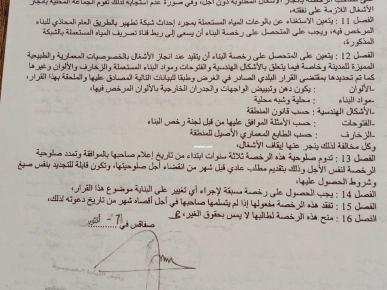 الأشغال اللازمة على نفقته.
الفصل 11 : يتعين الاستغناء عن بالوعات المياه المستعملة بمجرد إحداث شبكة تطهير بالطريق العام المحاذي للبناء
المرخص فيه، ويجب على المتحصل على رخصة البناء أن يسعى إلى ربط قناة تصريف المياه المستعملة بالشبكة
المذكورة.
الفصل 12 : يتعين على المتحصل على رخصة البناء أن يتقيد عند انجاز الأشغال بالخصوصيات المعمارية والطبيعية
المميزة للمدينة وخاصة فيما يتعلق بالأشكال الهندسية والفتوحات ومواد البناء المستعملة والزخارف والألوان وغيرها
كما تم تحديدها بمقتضى القرار البلدي الصادر في الغرض وطبقا للبيانات التالية المصادق عليها والملحقة بهذا القرار،
-الألوان : يكون دهن وتبييض الواجهات والجدران الخارجية بالألوان المرخص فيها،
-مواد البناء : محلية و شبه محلية
-الأشكال الهندسية : حسب قانون المنطقة
-الفتوحات : حسب الأمثلة الموافق عليها من قبل لجنة رخص البناء
-الزخارف : حسب الطابع المعماري الأصيل للمنطقة
وكل مخالفة لذلك ينجر عنها إيقاف الأشغال.
الفصل 13 : تدوم صلوحية هذه الرخصة ثلاثة سنوات ابتداء من تاريخ إعلام صاحبها بالموافقة وتمدد صلوحية
الرخصة لنفس الأجل وذلك بتقديم مطلب عادي قبل شهر من انقضاء أجل صلوحيتها، وتكون قابلة للتجديد بنفس صيغ
وشروط الحصول عليها.
الفصل 14 : يجب الحصول على رخصة مسبقة لإجراء أي تغيير على البناية موضوع هذا القرار.
الفصل 15 : تفقد هذه الرخصة مفعولها إذا لم يتسلمها صاحبها في أجل أقصاه شهر من تاريخ دعوته لذلك.
الفصل 16 : منح هذه الرخصة لطالبها لا يمس بحقوق الغير.
صفاقس في